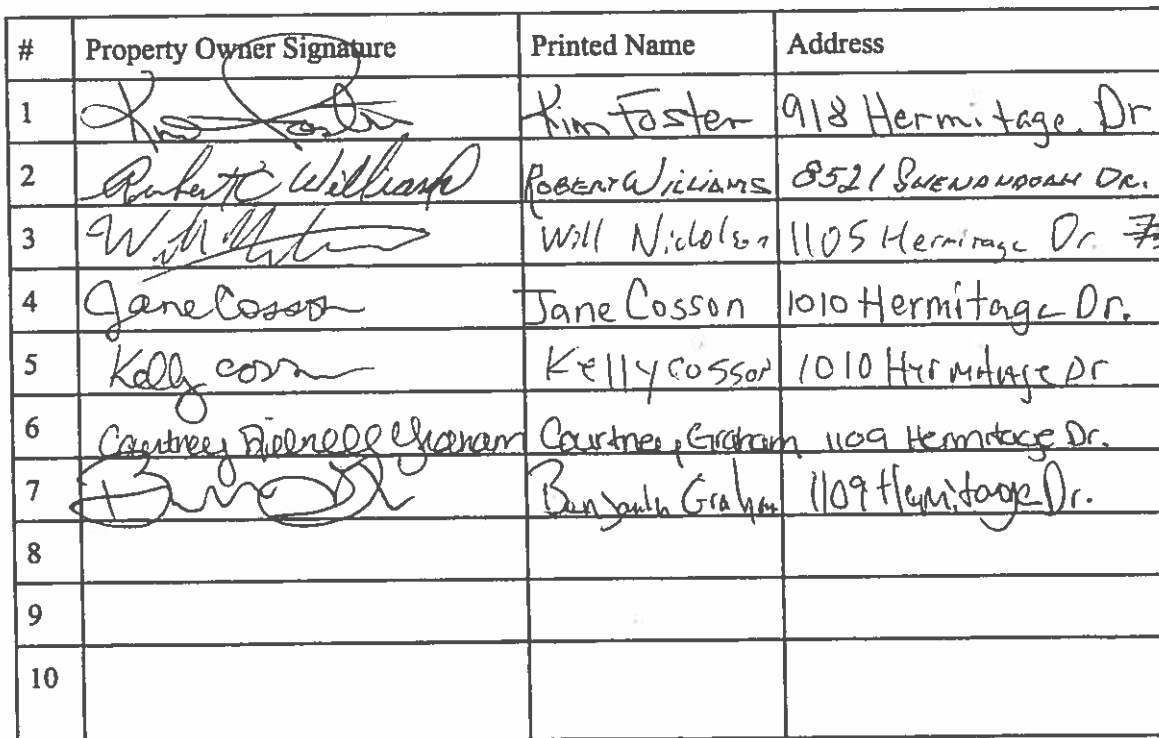 # Property Owner Signature Printed Name Address
1 Kim Foster Kim Foster 918 Hermitage Dr
2 Robert C Williams ROBERT WILLIAMS 8521 SHENANDOAH DR.
3 Will Nicholson 1105 Hermitage Dr.
4 Jane Cosson Jane Cosson 1010 Hermitage Dr.
5 Kelly Cosson Kelly Cosson 1010 Hermitage Dr
6 Courtney Graham Courtney Graham 1109 Hermitage Dr.
7 Benjamin Graham 1109 Hermitage Dr.
8
9
10